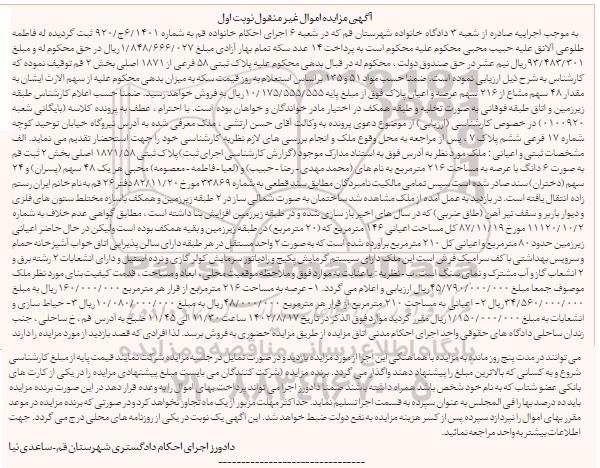 آگهی مزایده اموال غیر منقول نوبت اول
به موجب اجراییه صادره از شعبه ۳ دادگاه خانواده شهرستان قم که در شعبه ۶ اجرای احکام خانواده قم به شماره ۶/۱۴۰۱ج/۹۲۰ ثبت گردیده له فاطمه
طلوعی آلانق علیه حبیب محبی محکوم علیه محکوم است به پرداخت ۱۴ عدد سکه تمام بهار آزادی مبلغ ۱/۸۴۸/۶۶۶/۰۲۷ ریال در حق محکوم له و مبلغ
۹۳/۴۸۳/۳۰۱ ریال نیم عشر در حق صندوق دولت ، محکوم له در قبال بدهی محکوم علیه پلاک ثبتی ۵۸ فرعی از ۱۸۷۱ اصلی بخش ۲ قم توقیف نموده که
کارشناس به شرح ذیل ارزیابی نموده است. ضمنا حسب مواد ۵۱ و ۱۳۵ براساس استعلام به روز قیمت سکه به میزان بدهی محکوم علیه از سهم الارث ایشان به
مقدار ۴۸ سهم مشاع از ۲۱۶ سهم عرصه و اعیان پلاک فوق از مبلغ پایه ۱۰/۱۷۵/۵۵۵/۵۵۵ ریال به فروش خواهد رسید. ضمنا حسب اعلام کارشناس طبقه
زیرزمین و اتاق طبقه فوقانی به صورت تخلیه و طبقه همکف در اختیار مادر خواندگان و خواهان بوده است. با احترام ، عطف به پرونده کلاسه (بایگانی شعبه
۰۱۰۰۹۲۰) در خصوص کارشناسی (ارزیابی) از موضوع دعوی پرونده به وکالت آقای حسن ارتشی ، ملک معرفی شده به آدرس نیروگاه خیابان توحید کوچه
شماره ۱۷ فرعی ششم پلاک ۷ ، پس از مراجعه به محل وقوع ملک و انجام بررسی های لازم نظریه کارشناسی خود را جهت استحضار تقدیم می نماید. الف
مشخصات ثبتی و اعیانی : ملک مورد نظر به آدرس فوق به استناد مدارک موجود (گزارش کارشناسی اجرای ثبت) پلاک ثبتی ۱۸۷۱/۵۸ اصلی بخش ۲ ثبت قم
به صورت ۶ دانگ با عرصه به مساحت ۲۱۶ مترمربع به نام های (محمد مهدی - رضا - حبیب) و (لعیا - فاطمه - معصومه) محبی هر یک ۴۸ سهم (پسران) و ۲۴
سهم (دختران) سند صادر شده است سپس تمامی مالکیت نامبردگان مطابق سند قطعی به شماره ۳۳۸۶۹ مورخ ۸۲/۱۱/۲۰ دفتر ۲۶ قم به نام خانم ایران رستم
زاده انتقال یافته است. در بازدید به عمل آمده از ملک مشاهده شد ساختمان به صورت شمالی ساز در ۲ طبقه زیرزمین و همکف با سازه مختلط ستون های فلزی
و دیوار باربر و سقف تیر آهن (طاق ضربی) که در سال های اخیر باز سازی شده و در طبقه زیرزمین افزایش بنا داشته است ، مطابق گواهی عدم خلاف به شماره
۱۱۱۲۰/۱۰/۲ مورخ ۸۷/۱۱/۱۹ کل مساحت اعیانی ۱۴۶ مترمربع که (۲۰ مترمربع) در طبقه زیرزمین و بقیه همکف بوده است ولیکن در حال حاضر اعیانی
زیرزمین حدود ۸۰ مترمربع و اعیانی کل ۲۱۰ مترمربع برآورده شده است که به صورت ۲ واحد مستقل در هر طبقه دارای سالن پذیرایی اتاق خواب آشپزخانه حمام
و سرویس بهداشتی با کف سرامیک فرش است این ملک دارای سیستم گرمایش پکیج و رادیاتور سرمایش کولر گازی و نرده استیل و دارای انشعابات ۲ رشته برق و
۲ انشعاب گاز و آب مشترک و نمای سنگ است. ب: نظریه : با عنایت به موارد فوق و ملاحظه موقعیت محلی ، ابعاد و مساحت ، قدمت کیفیت بنای مورد نظر ملک
موصوف جمعا مبلغ ۴۵/۷۹۰/۰۰۰/۰۰۰ ریال ارزیابی و اعلام می گردد. ۱- عرصه به مساحت ۲۱۶ مترمربع از قرار هر مترمربع ۱۶۰/۰۰۰/۰۰۰ ریال به مبلغ
۳۴/۵۶۰/۰۰۰/۰۰۰ ریال ۲- اعیانی به مساحت ۲۱۰ مترمربع از قرار هر مترمربع ۴۸/۰۰۰/۰۰۰ ریال به مبلغ ۱۰/۰۸۰/۰۰۰/۰۰۰ ریال ۳- حیاط سازی و
انشعابات به مبلغ ۱/۱۵۰/۰۰۰/۰۰۰ ریال مقرر گردید موارد فوق الذکر در تاریخ ۱۴۰۲/۸/۱۷ ساعت ۱۱/۳۰ الی ۱۱/۴۵ صبح به آدرس قم ، خ ساحلی ، جنب
زندان ساحلی دادگاه های حقوقی واحد اجرای احکام مدنی ، اتاق مزایده از طریق مزایده حضوری به فروش برسد. لذا افرادی که قصد بازدید از مورد مزایده را دارند
می توانند در مدت پنج روز مانده به مزایده با هماهنگی این اجرا از مورد مزایده بازدید و در صورت تمایل در جلسه مزایده شرکت نمایند قیمت پایه از مبلغ کارشناسی
شروع و به کسانی که بالاترین مبلغ را پیشنهاد دهند واگذار می گردد. برنده مزایده (شرکت کنندگان می بایست مبلغ پیشنهادی مزایده را در یکی از کارت های
بانکی عضو شتاب که به نام خود شخص باشد، همراه داشته باشند. ضمنا دادورز اجرا می تواند پرداخت بهای اموال را به وعده قرار دهد در این صورت برنده مزایده
باید ده درصد بها را فی المجلس به عنوان سپرده به قسمت اجرا تسلیم نماید. حداکثر مهلت مزبور از یک ماه تجاوز نخواهد کرد و در صورتی که برنده مزایده در موعد
مقرر بهای اموال را نپردازد سپرده پس از کسر هزینه مزایده به نفع دولت ضبط خواهد شد. این آگهی یک نوبت در یکی از روزنامه های محلی درج می گردد. جهت
اطلاعات بیشتر به واحد مراجعه نمائید.
دادورز اجرای احکام دادگستری شهرستان قم-ساعدی نیا